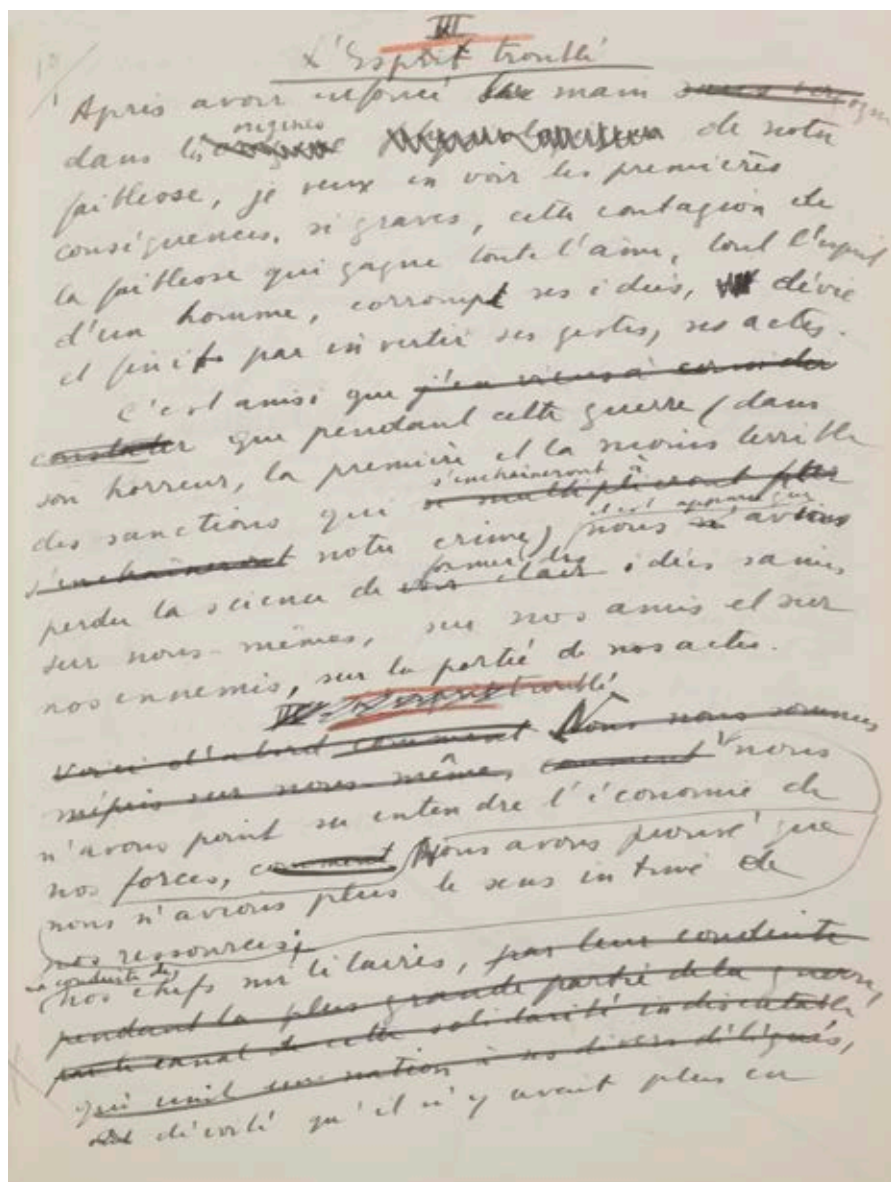 III
L'Esprit troublé
Après avoir enfoncé la main sans vergogne
origines
dans les de notre
faiblesse, je veux en voir les premières
conséquences, si graves, cette contagion de
la faiblesse qui gagne toute l'âme, tout l'esprit
d'un homme, corrompt ses idées, dévie
et finit par invertir ses gestes, ses actes.
C'est ainsi que j'en viens à considér
constater que pendant cette guerre (dans
son horreur, la première et la moins terrible
s'enchaîneront à
des sanctions qui se multiplieront
il est apparu que
s'enchaîneront notre crime) nous n'avions
former des
perdu la science de voir clair idées saines
sur nous-mêmes, sur nos amis et sur
nos ennemis, sur la portée de nos actes.
L'esprit troublé
Voici d'abord comment Nous nous sommes
mépris sur nous-même, comment nous
n'avons point su entendre l'économie de
nos forces, comment Nous avons prouvé que
nous n'avions plus le sens intime de
nos ressources.
La conduite de
nos chefs militaires, par leur conduite
pendant la plus grande partie de la guerre,
par le canal de cette solidarité indiscutable
qui unit une nation à ses divers délégués,
décelé qu'il n'y avait plus en